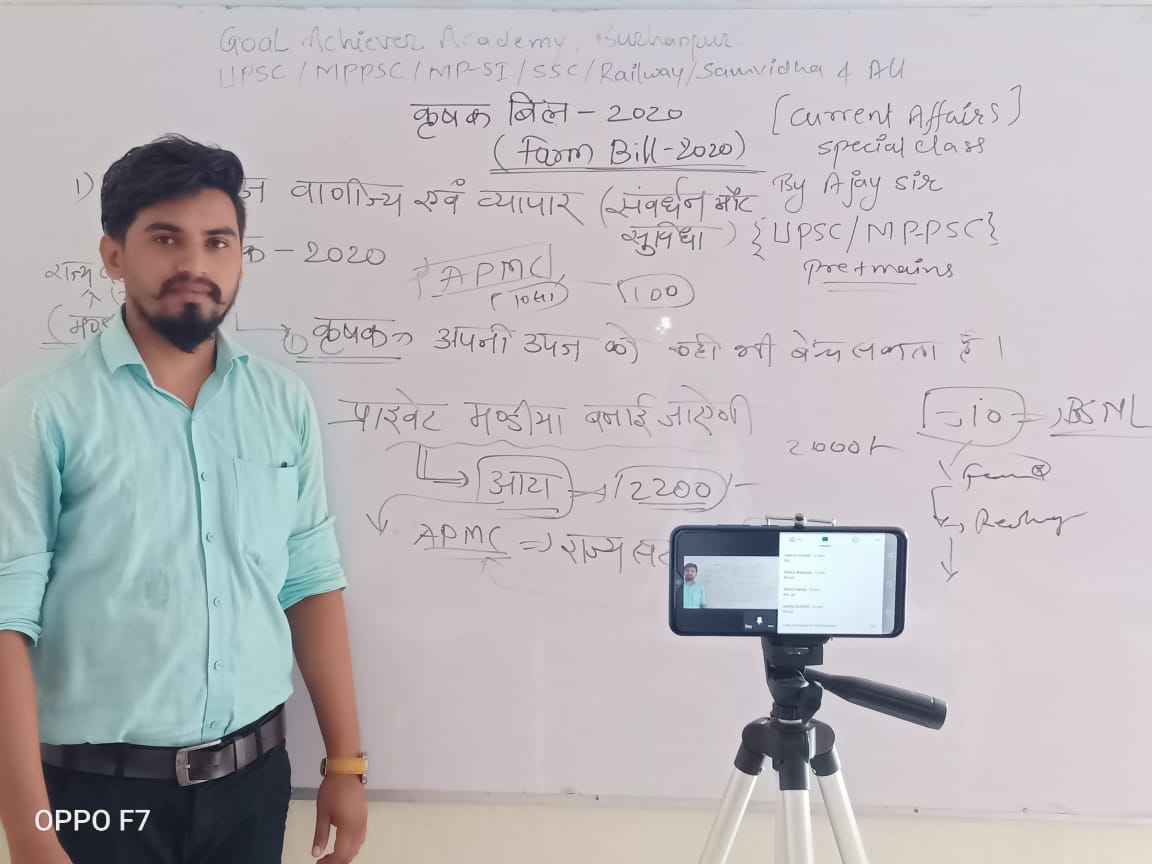 Goal Achiever Academy, Burhanpur.
UPSC / MPPSC / MP-SI / SSC / Railway / Samvidha & All
कृषक बिल - 2020
(Farm Bill-2020)
[Current Affairs]
special class
By Ajay sir
{UPSC/MPPSC}
Pre+mains
1)
वाणीज्य एवं व्यापार (संवर्धन और
सुविधा)
क - 2020
APMC
(100)
राज्य
① कृषक => अपनी उपज को कही भी बेच सकता हैं।
प्राइवेट मण्डीया बनाई जाऐगी
आटा → 2200/-
2000/-
APMC => राज्य
Jio → BSNL
OPPO F7